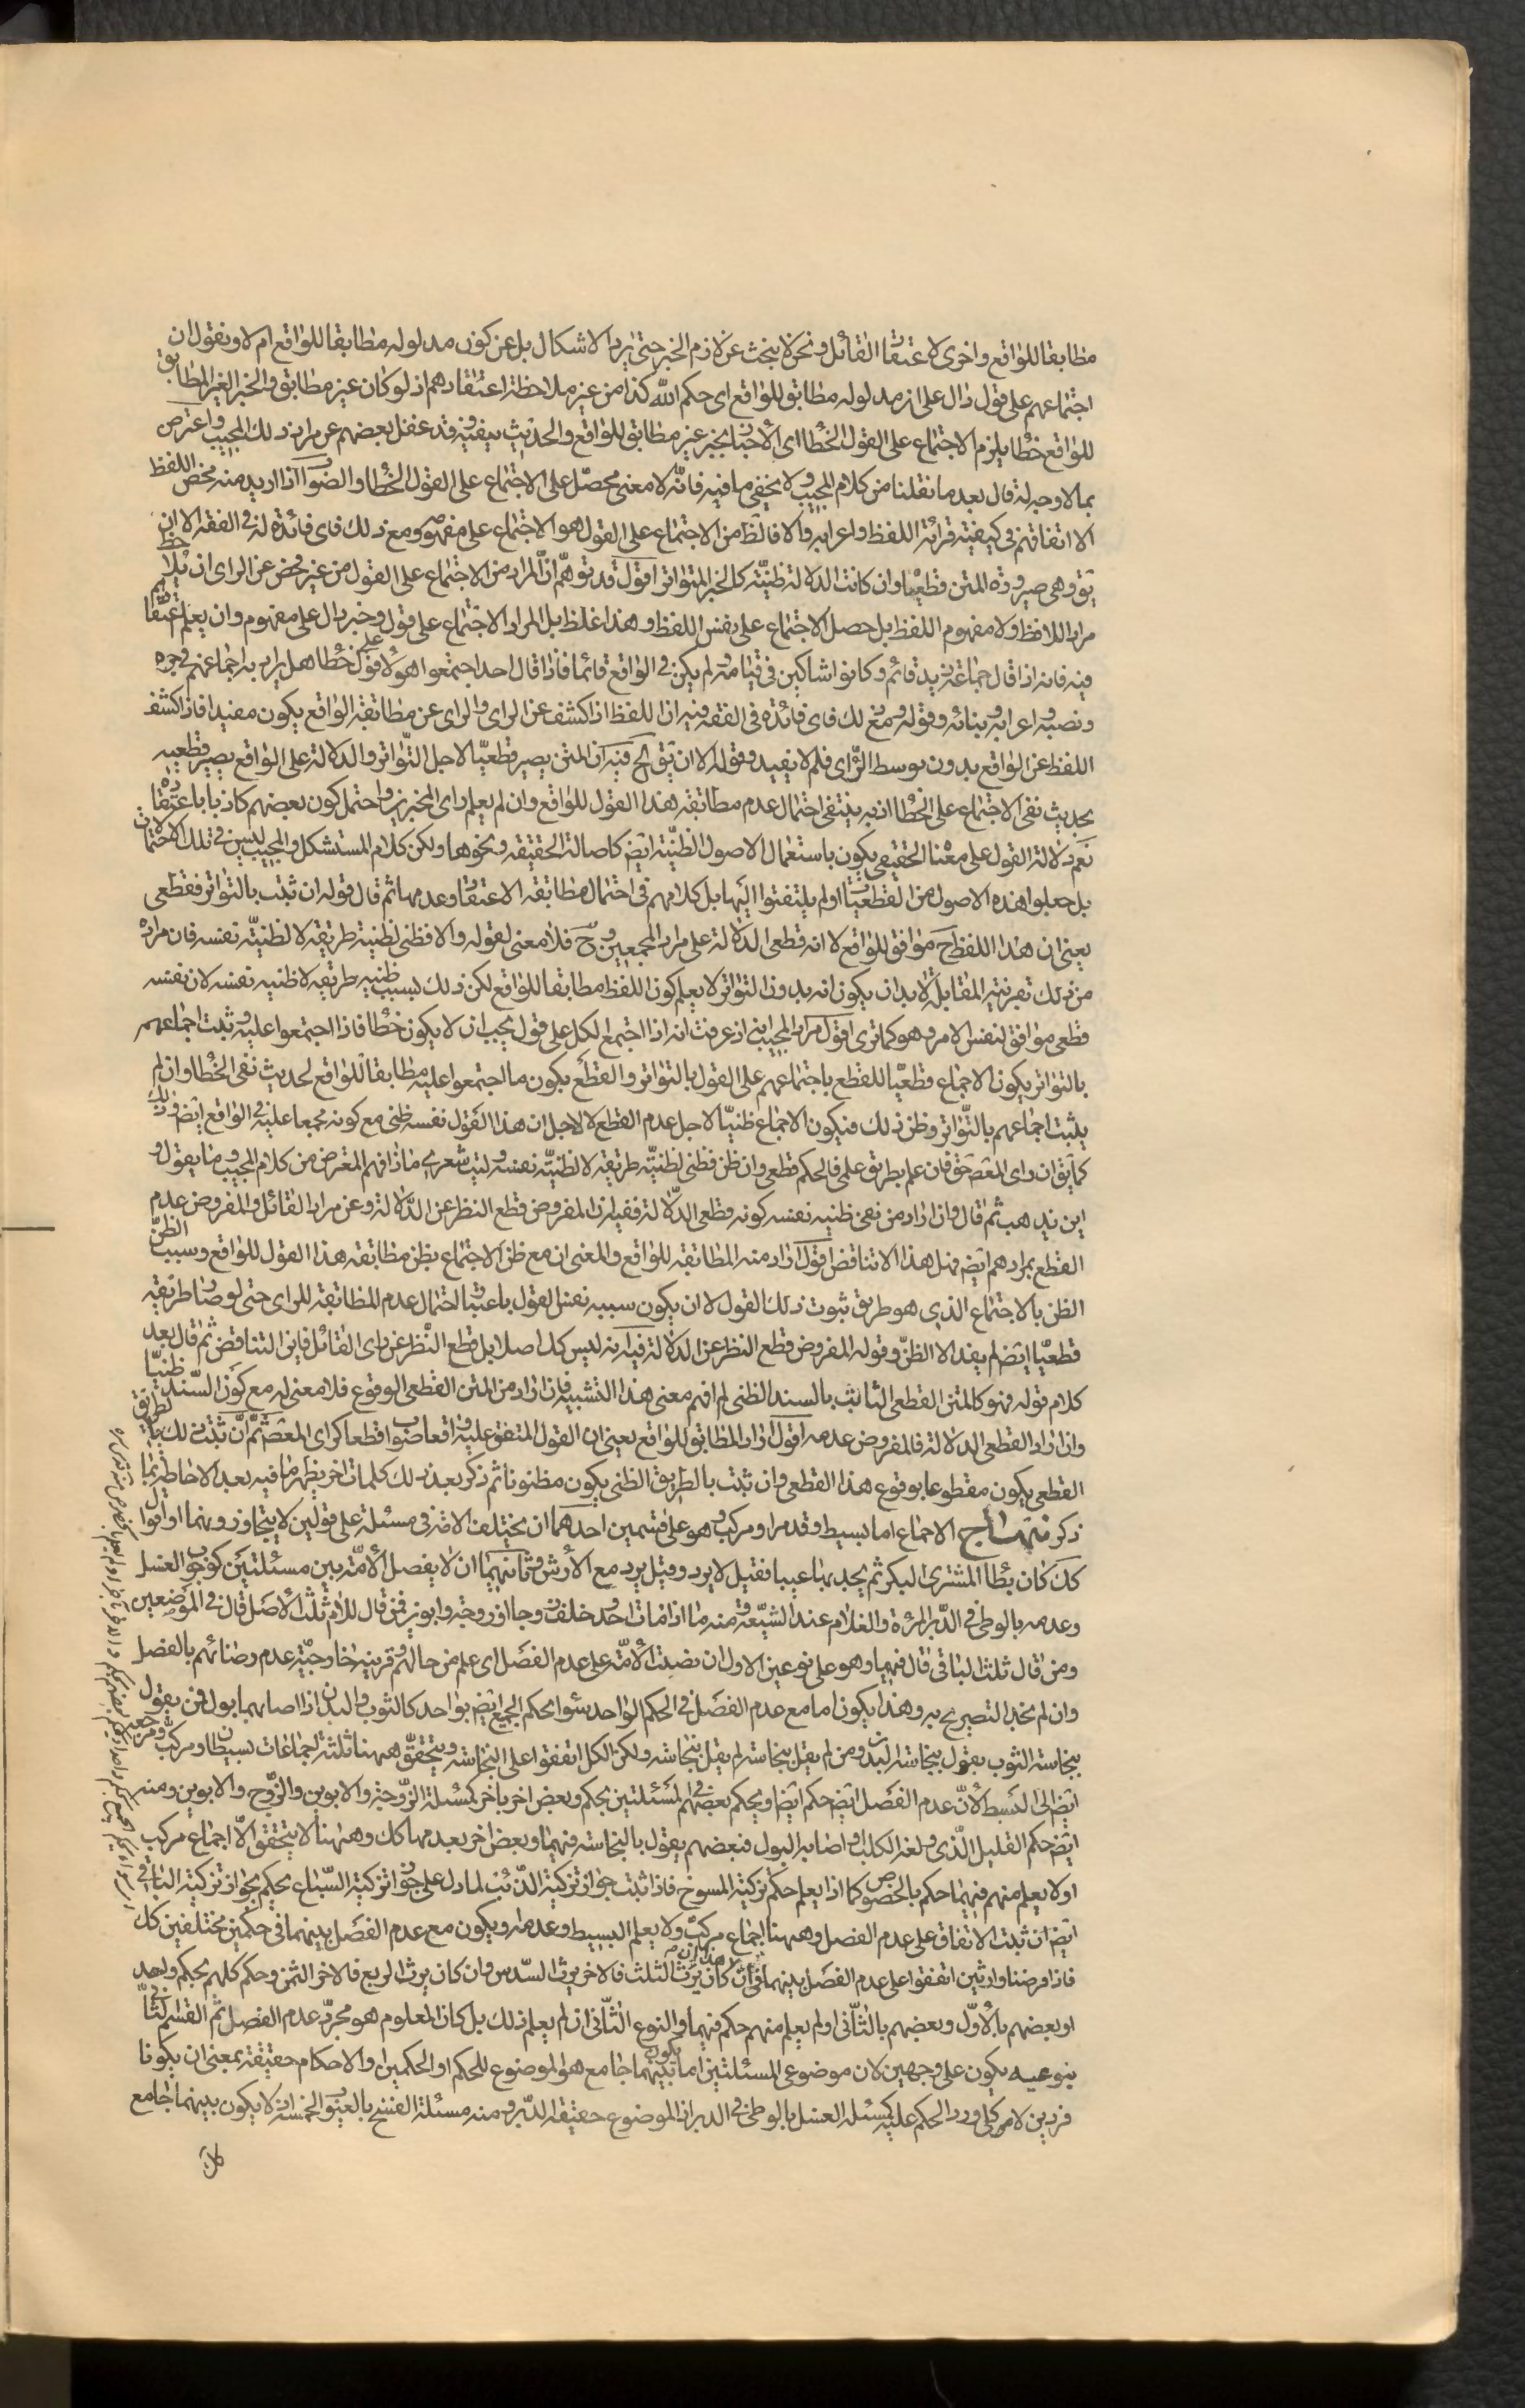 مطابقا للواقع واخرى لاعتقاد القائل ونحن لا نبحث عن لازم الخبر حتى يرد الاشكال بل عن كون مدلوله مطابقا للواقع ام لا ونقول ان
اجتماعهم على قول دال على ان مدلوله مطابق للواقع اى حكم الله كذا من غير ملاحظة اعتقادهم اذ لو كان غير مطابق والخبر الغير المطابق
للواقع خطا يلزم الاجتماع على القول الخطا اى الاخبار بخبر غير مطابق للواقع والحديث ينفيه وقد غفل بعضهم عن مراد ذلك المجيب واعترض
بما لا وجه له قال بعد ما نقلنا من كلام المجيب ولا يخفى ما فيه فانه لا معنى محصل على الاجتماع على القول الخطا والصواب اذا اريد منه محض اللفظ
الا اتفاقهم فى كيفية قرائة اللفظ واعرابه والا فالظ من الاجتماع على القول هو الاجتماع على مفهومه ومع ذلك فاى فائدة له فى الفقه الا ان
يق وهى صيرورة المتن قطعيا وان كانت الدلالة ظنية كالخبر المتواتر اقول قد توهم ان المراد من الاجتماع على القول من غير فحص عن الراى ان لا يلاحظ
مراد اللافظ ولا مفهوم اللفظ بل حصل الاجتماع على نفس اللفظ وهذا غلط بل المراد الاجتماع على قول وخبر دال على مفهوم وان لم يعلم اعتقادهم
فيه فانه اذا قال جماعة زيد قائم وكانوا شاكين فى قيامه ولم يكن فى الواقع قائما فاذا قال احد اجتمعوا هؤلاء على قول خطا هل يراد به اجماعهم فى جره
ونصبه واعرابه وبنائه وقوله ومع ذلك فاى فائدة فى الفقه فيه ان اللفظ اذا كشف عن الراى والراى عن مطابقة الواقع يكون مفيدا فاذا كشف
اللفظ عن الواقع بدون توسط الراى فلم لا يفيد وقوله الا ان يق الخ فيه ان المتن يصير قطعيا لاجل التواتر والدلالة على الواقع يصير قطعيه
بحديث نفى الاجتماع على الخطا اذ به ينتفى احتمال عدم مطابقة هذا القول للواقع وان لم يعلم راى المخبرين واحتمل كون بعضهم كاذبا باعتقاده
نعم دلالة القول على معناه الحقيقى يكون باستعمال الاصول الظنية ايض كاصالة الحقيقة ونحوها ولكن كلام المستشكل والمجيب ليس فى تلك الاحتمالات
بل جعلوا هذه الاصول من القطعيات او لم يلتفتوا اليها بل كلامهم فى احتمال مطابقة الاعتقاد وعدمها ثم قال قوله ان ثبت بالتواتر فقطعى
يعنى ان هذا اللفظ ح موافق للواقع لا انه قطعى الدلالة على مراد المجمعين وح فلا معنى لقوله والا فظنى لظنية طريقه لا لظنية نفسه فان مراده
من ذلك بقرينة المقابلة لا بد ان يكون انه بدون التواتر لا يعلم كون اللفظ مطابقا للواقع لكن ذلك بسبب ظنيه طريقه لا ظنيه نفسه لان نفسه
قطعى موافق لنفس الامر وهو كما ترى اقول مراد المجيب انه اذ عرفت انه اذا اجتمع الكل على قول يجب ان لا يكون خطا فاذا اجتمعوا عليه وثبت اجماعهم
بالتواتر يكون الاجماع قطعيا للقطع باجتماعهم على القول بالتواتر والقطع بكون ما اجتمعوا عليه مطابقا للواقع لحديث نفى الخطا وان لم
يثبت اجماعهم بالتواتر وظن ذلك فيكون الاجماع ظنيا لاجل عدم القطع لا لاجل ان هذا القول نفسه ظنى مع كونه مجمعا عليه فى الواقع ايض وذلك
كما يق ان راى المعصوم حق فان علم بطريق علمى فالحكم قطعى وان ظن فظنى لظنية طريقه لا لظنية نفسه وليت شعرى ماذا فهم المعترض من كلام المجيب وما يقول و
اين يذهب ثم قال وان اراد من نفى ظنيه نفسه كونه قطعى الدلالة ففيه ان المفروض قطع النظر عن الدلالة وعن مراد القائل والمفروض عدم
القطع بمرادهم ايض فهل هذا الا تناقض اقول اراد منه المطابقة للواقع والمعنى ان مع ظن الاجتماع يظن مطابقة هذا القول للواقع وسبب الظن
الظن بالاجتماع الذى هو طريق ثبوت ذلك القول لا ان يكون سببه نفس القول باعتبار احتمال عدم المطابقة للراى حتى لو صار طريقه
قطعيا ايض لم يفد الا الظن وقوله المفروض قطع النظر عن الدلالة فيه انه ليس كك اصلا بل قطع النظر عن راى القائل فاين التناقض ثم قال بعد
كلام قوله فهو كالمتن القطعى الثابت بالسند الظنى لم افهم معنى هذا التشبيه فان اراد من المتن القطعى الوقوع فلا معنى له مع كون السند ظنيا
وان اراد القطعى الدلالة فالمفروض عدمه اقول اراد المطابق للواقع يعنى ان القول المتفق عليه واقعا صواب قطعا كراى المعصوم ثم ان ثبت ذلك بالطريق
القطعى يكون مقطوعا بوقوع هذا القطعى وان ثبت بالطريق الظنى يكون مظنونا ثم ذكر بعد ذلك كلمات اخر يظهر ما فيه بعد الاحاطة بما
ذكر منهاج الاجماع اما بسيط وقد مر او مركب وهو على قسمين احدهما ان يختلف الامة فى مسئلة على قولين لا يتجاوزونهما او اقوال
كك كان يطا المشترى البكر ثم يجد بها عيبا فقيل لا يرد وقيل يرد مع الارش وثانيهما ان لا يفصل الامة بين مسئلتين كوجوب الغسل
وعدمه بالوطى فى الدبر المرئة والغلام عند الشيعة ومنه ما اذا مات احد وخلف زوجا او زوجة وابوين فمن قال للام ثلث الاصل قال فى الموضعين
ومن قال ثلث الباقى قال فيهما وهو على نوعين الاول ان نصت الامة على عدم الفصل اى علم من حالهم وقرينة خارجية عدم رضائهم بالفصل
وان لم نجد التصريح به وهذا يكون اما مع عدم الفصل فى الحكم الواحد سواء حكم الجميع ايض بواحد كالثوب والبدن اذا اصابهما بول فمن يقول
بنجاسة الثوب يقول بنجاسة البدن ومن لم يقل بنجاسته لم يقل بنجاسته ولكن الكل اتفقوا على النجاسة ويتحقق ههنا ثلثة اجماعات بسيطان ومركب ومرجعه
ايض الى البسيط لان عدم الفصل ايض حكم ايضا ويحكم بعضهم فى المسئلتين بحكم وبعض اخر باخر كمسئلة الزوجة والابوين والزوج والابوين ومنه
ايض حكم القليل الذى ولغه الكلب او اصابه البول فبعضهم يقول بالنجاسة فيهما وبعض اخر بعدمها كك وههنا لا يتحقق الا اجماع مركب
او لا يعلم منهم فيهما حكم بالخصوص كما اذا يعلم حكم تزكية المسوخ فاذا ثبت جواز تزكية الذئب لما دل على جواز تزكية السباع يحكم بجواز تزكية الباقى
ايض ان ثبت الاتفاق على عدم الفصل وههنا اجماع مركب ولا يعلم البسيط وعدمه او يكون مع عدم الفصل بينهما فى حكمين مختلفين كك
فاذا فرضنا وارثين اتفقوا على عدم الفصل بينهما فى ان كان يرث الثلث فالاخر يرث السدس وان كان يرث الربع فالاخر الثمن وحكم كلهم بحكم واحد
او بعضهم بالاول وبعضهم بالثانى او لم يعلم منهم حكم فيهما والنوع الثانى ان لم يعلم ذلك بل كان المعلوم هو مجرد عدم الفصل ثم القسم الثانى
بنوعيه يكون على وجهين لان موضوعى المسئلتين اما يكون بينهما جامع هو الموضوع للحكم او الحكمين او الاحكام حقيقة بمعنى ان يكونا
فردين لامر كلى ورد الحكم عليه كمسئلة الغسل بالوطى فى الدبر اذ الموضوع حقيقة الدبر ومنه مسئلة الفسخ بالعيوب الخمسة او لا يكون بينهما جامع